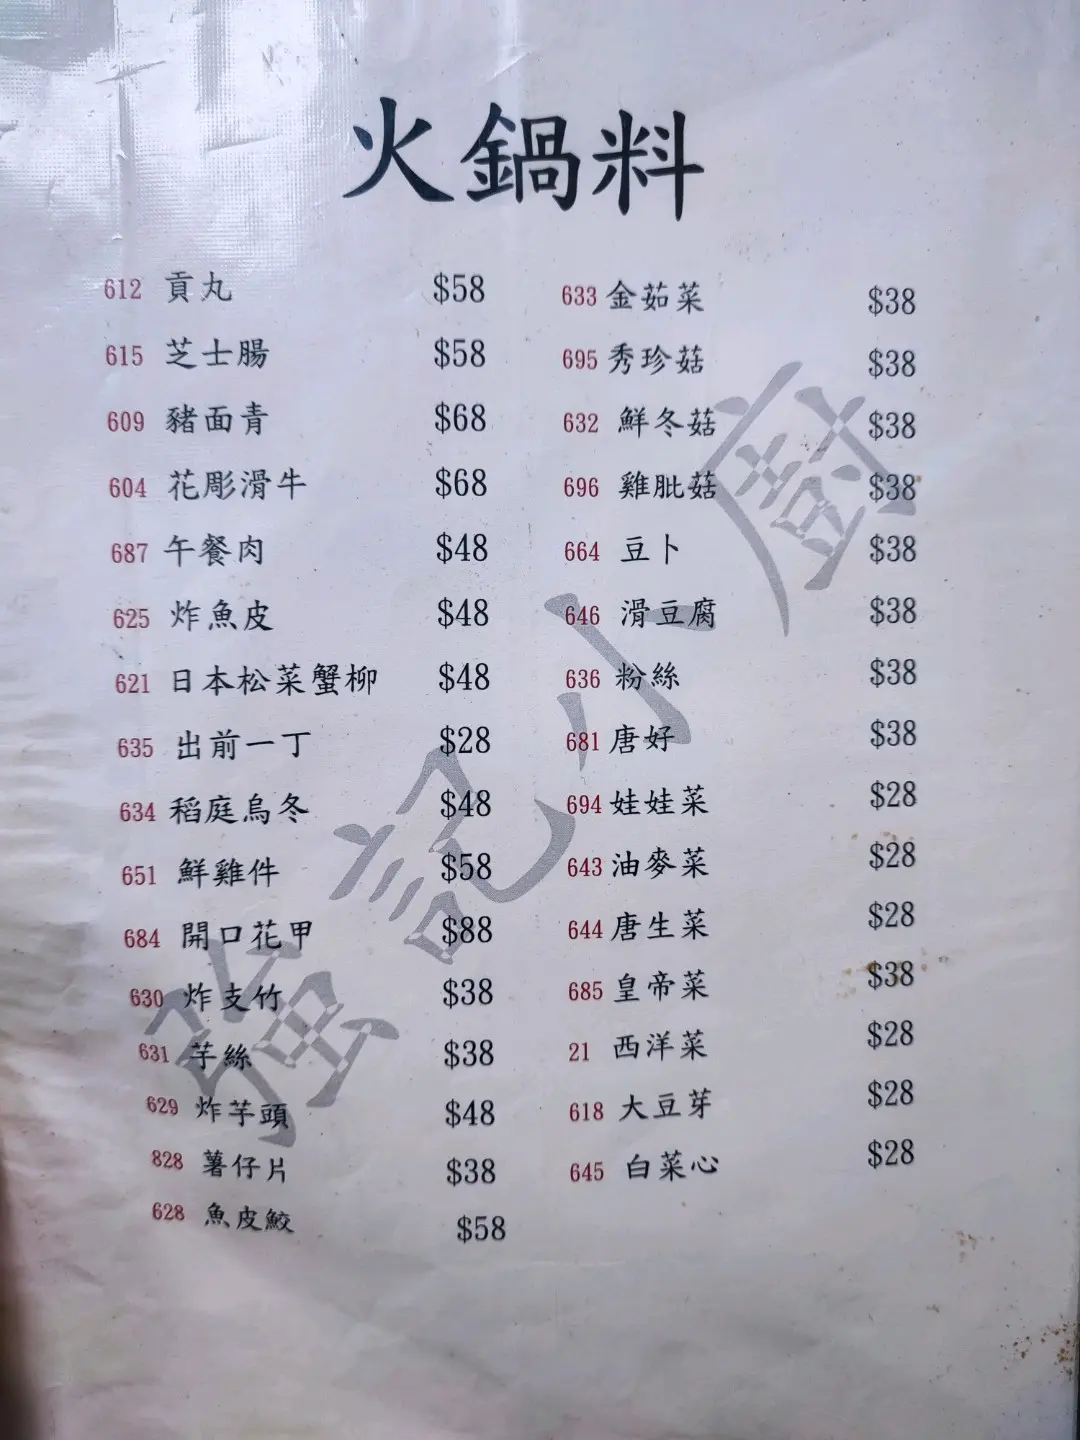 火鍋料
612 貢丸 $58
615 芝士腸 $58
609 豬面青 $68
604 花彫滑牛 $68
687 午餐肉 $48
625 炸魚皮 $48
621 日本松菜蟹柳 $48
635 出前一丁 $28
634 稻庭烏冬 $48
651 鮮雞件 $58
684 開口花甲 $88
630 炸支竹 $38
631 芋絲 $38
629 炸芋頭 $48
828 薯仔片 $38
628 魚皮鮫 $58
633 金茹菜 $38
695 秀珍菇 $38
632 鮮冬菇 $38
696 雞肶菇 $38
664 豆卜 $38
646 滑豆腐 $38
636 粉絲 $38
681 唐好 $38
694 娃娃菜 $28
643 油麥菜 $28
644 唐生菜 $28
685 皇帝菜 $38
21 西洋菜 $28
618 大豆芽 $28
645 白菜心 $28
強記小廚